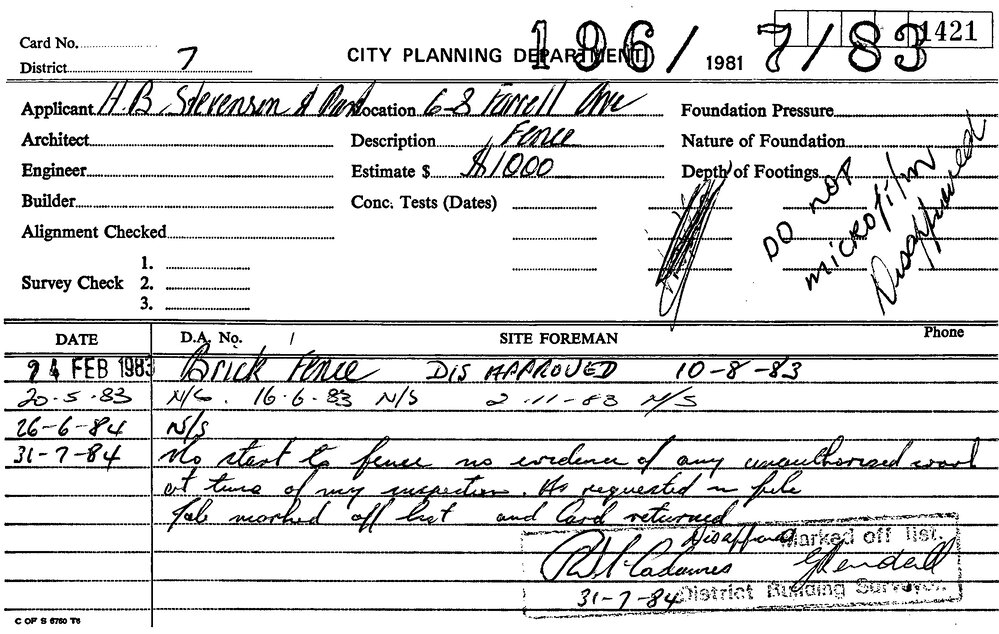 1421
Card No.
196/ 1981 7/83
CITY PLANNING DEPARTMENT
District 7
Applicant H.B. Stevenson & Location 6-8 Farrell Ave Foundation Pressure
Architect Description Fence Nature of Foundation
Engineer Estimate $ $1000 Depth of Footings
Builder Conc. Tests (Dates)
DO NOT
microfilm
Disapproved
Alignment Checked
1.
Survey Check 2.
3.
DATE D.A. No. / SITE FOREMAN Phone
24 FEB 1983 Brick Fence DISAPPROVED 10-8-83
20.5.83 N/S. 16.6.83 N/S 2-11-83 N/S
26-6-84 N/S
31-7-84 No start to fence no evidence of any unauthorised work
at time of my inspection. As requested in file
Job marked off list and Card returned
Disapproved Marked off list.
31-7-84 District Building Surveyor.
C OF S 6750 T6